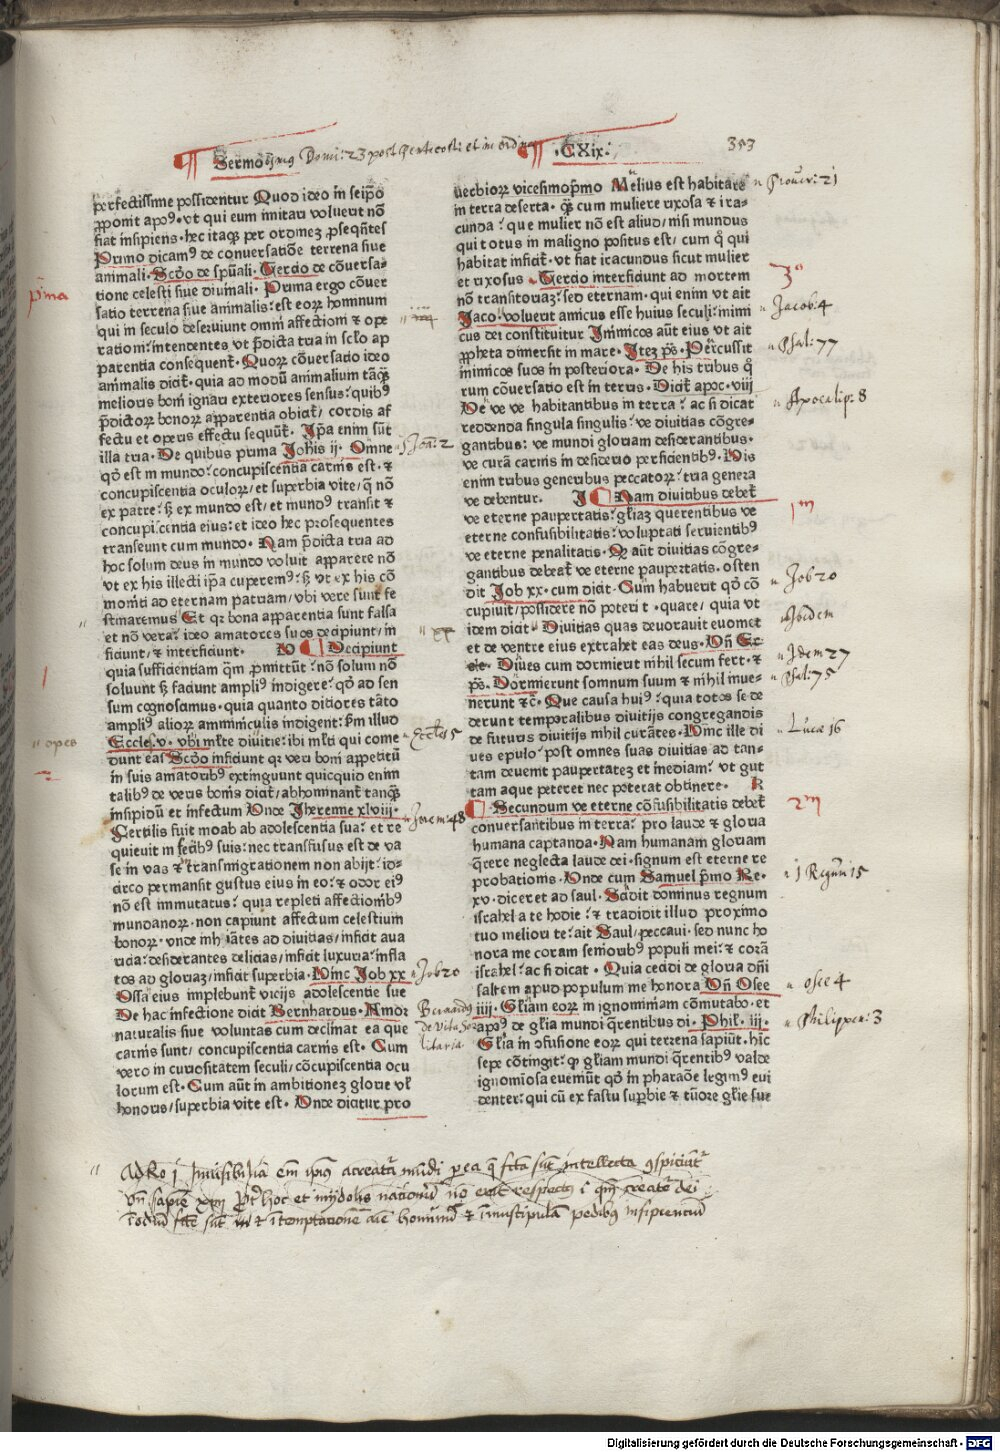 Sermo Domi: 23 post Pentecost: et in ordine .CXix. 353
perfectissime possidentur Quod ideo in seip̄o
ꝓponit apo⁹. vt qui eum imitari voluerit nō
fiat insipiens. hec itaqꝫ per ordinez p̄seqn̄tes
Primo dicam⁹ de conuersatiōe terrena siue
animali. Scd̄o de sp̄uali. Tercio de cōuersa-
tione celesti siue diuinali. Prima ergo cōuer
satio terrena siue animalis: est eoꝝ hominum
qui in seculo deseruiunt omni affectioni & ope
rationi: intendentes vt p̄dicta tria in sclo ap
parentia consequent̄. Quoꝝ cōuersatio ideo
animalis dicit̄. quia ad modū animalium tāqꝫ
melioris boni ignari exteriores sensus: quib⁹
p̄dictoꝝ bonoꝝ apparentia obicit̄/ cordis af
fectu et operis effectu sequūt̄. Ip̄a enim sūt
illa tria. De quibus prima Joh̄is ij. Omne
qd̄ est in mundo: concupiscentia carnis est. &
concupiscentia oculoꝝ/ et superbia vite/ q̄ nō
ex patre: sꝫ ex mundo est/ et mund⁹ transit &
concupiscentia eius: et ideo hec prosequentes
transeunt cum mundo. Nam p̄dicta tria ad
hoc solum deus in mundo voluit apparere nō
vt ex his illecti ip̄a cuperem⁹: sꝫ vt ex his cō
moniti ad eternam patriam/ vbi vere sunt fe
stinaremus Et qꝛ bona apparentia sunt falsa
et nō vera: ideo amatores suos decipiunt/ in
ficiunt/ & interficiunt. Decipiunt
quia sufficientiam qm̄ ꝓmittūt: nō solum nō
soluunt sꝫ faciunt ampli⁹ indigere: qd̄ ad sen
sum cognoscimus. quia quanto ditiores tāto
ampli⁹ alioꝝ amminiculis indigent: ẜm illud
Eccles. v. vbi ml̄te diuitie: ibi ml̄ti qui come
dunt eas Scd̄o inficiunt qꝛ veri boni appetitū
in suis amatorib⁹ extinguunt quicquid enim
talib⁹ de veris bonis dicit̄/ abhominant̄ tanqꝫ
insipidū et infectum Unde Jheremie xlviij.
Fertilis fuit moab ab adolescentia sua: et re
quieuit in fecib⁹ suis: nec transfusus est de va
se in vas & in transmigrationem non abijt: id-
circo permansit gustus eius in eo: & odor ei⁹
nō est immutatus: quia repleti affectionib⁹
mundanoꝝ. non capiunt affectum celestium
bonoꝝ. vnde inhiātes ad diuitias/ inficit aua
ricia: desiderantes delicias/ inficit luxuria: infla
tos ad gloriaz/ inficit superbia. Hinc Job xx
Ossa eius implebunt̄ vicijs adolescentie sue
De hac infectione dicit Bernhardus. Amor
naturalis siue voluntas cum declinat ea que
carnis sunt/ concupiscentia carnis est. Cum
vero in curiositatem seculi/ cōcupiscentia ocu
lorum est. Cum aūt in ambitionez glorie vl̄
honoris/ superbia vite est. Unde dicitur pro
uerbioꝝ vicesimop̄mo Melius est habitare
in terra deserta. qꝫ cum muliere rixosa & ira-
cunda: que mulier nō est aliud/ nisi mundus
qui totus in maligno positus est/ cum q̄ qui
habitat inficit̄. vt fiat iracundus sicut mulier
et rixosus. Tercio interficiunt ad mortem
nō transitoriaz: sed eternam. qui enim vt ait
Jaco. voluerit amicus esse huius seculi: inimi
cus dei constituitur Inimicos aūt eius vt ait
ꝓpheta dimersit in mare. Itez ps̄. Percussit
inimicos suos in posteriora. De his tribus q̄
rum cōuersatio est in terris. Dicit̄ apoc. viij
Ue ve ve habitantibus in terra: ac si dicat
reddenda singula singulis: ve diuitias cōgre-
gantibus: ve mundi gloriam desiderantibus.
ve curā carnis in desiderio perficientib⁹. His
enim tribus generibus peccatoꝝ: tria genera
ve debentur. J Nam diuitibus debet̄
ve eterne paupertatis: gl̄iaz querentibus ve
eterne confusibilitatis: voluptati seruientib⁹
ve eterne penalitatis. Qꝛ aūt diuitias cōgre-
gantibus debeat̄ ve eterne paupertatis. osten
dit Job xx. cum dicit. Cum habuerit qd̄ cō
cupiuit/ possidere nō poterit. quare/ quia vt
idem dicit Diuitias quas deuorauit euomet
et de ventre eius extrahet eas deus. Un̄ Ec-
cle. Diues cum dormierit nihil secum fert. &
ps̄. Dormierunt somnum suum & nihil inue-
nerunt &c̄. Que causa hui⁹: quia totos se de
derunt temporalibus diuitijs congregandis
de futuris diuitijs nihil curātes. Hinc ille di
ues epulo/ post omnes suas diuitias ad tan-
tam deuenit paupertatez et inediam: vt gut
tam aque peteret nec poterat obtinere. K
Secundum ve eterne cōfusibilitatis debet̄
conuersantibus in terra: pro laude & gloria
humana captanda. Nam humanam gloriam
q̄rere neglecta laude dei. signum est eterne re
probationis. Unde cum Samuel p̄mo Re.
xv. diceret ad saul. Scidit dominus regnum
israhel a te hodie: & tradidit illud proximo
tuo meliori te: ait Saul/ peccaui. sed nunc ho
nora me coram seniorib⁹ populi mei: & corā
israhel: ac si dicat. Quia cecidi de gloria dn̄i
saltem apud populum me honora Un̄ Osee
iiij. Gl̄iam eoꝝ in ignominiam cōmutabo. et
aps⁹ de gl̄ia mundi q̄rentibus di. Phil. iij.
Gl̄ia in ↄfusione eoꝝ qui terrena sapiūt. hic
sepe cōtingit: qꝫ gl̄iam mundi q̄rentib⁹ valde
ignominiosa euenīut qd̄ in pharaōe legim⁹ eui
denter: qui cū ex fastu suꝑbie & timore gl̄ie sue
p̄ma
opes
Joā: 2
xx
Eccles 5
Jerem: 48
Job 20
Bernardus
de Vita So
litaria
Prouer: 21
3º
Jacob: 4
Psal: 77
Apocalip: 8
1m
Job 20
Ibidem
Idem 27
Psal: 75
Lucæ 16
2m
1 Regum 15
osee 4
Philippen: 3
Ad Ro i Inuisibilia em̄ ipius a creatā mūdi per ea q̄ fctā sūt intellecta ↄspiciūt
vn̄ Sapiē xiiij Pr̄ hoc et in ydolis nationū nō erit respectus i qm̄ creatē dei
i odiū fctē sūt & i temptationē aīe hominū & i muscipulā pedibus insipientiū
Digitalisierung gefördert durch die Deutsche Forschungsgemeinschaft - DFG